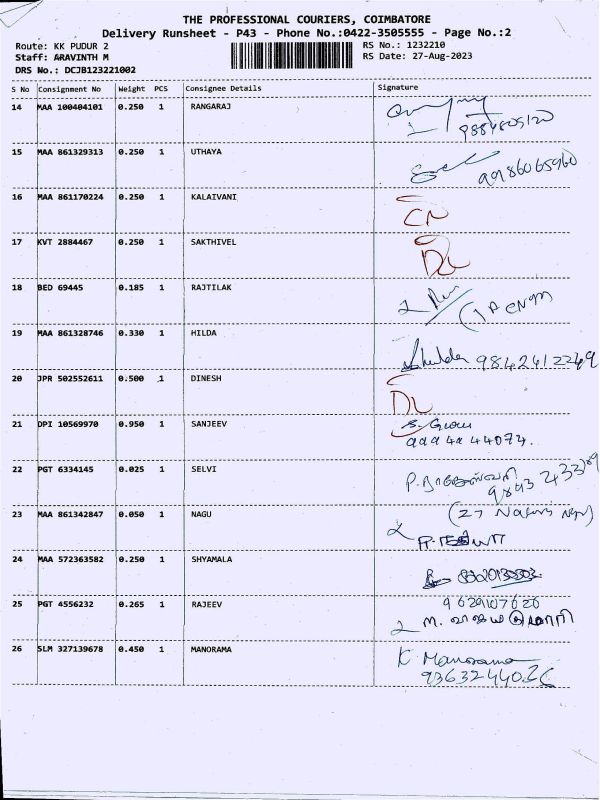 THE PROFESSIONAL COURIERS, COIMBATORE
Delivery Runsheet - P43 - Phone No.:0422-3505555 - Page No.:2
Route: KK PUDUR 2 RS No.: 1232210
Staff: ARAVINTH M RS Date: 27-Aug-2023
DRS No.: DCJB123221002
S No Consignment No Weight PCS Consignee Details Signature
14 MAA 100404101 0.250 1 RANGARAJ
15 MAA 861329313 0.250 1 UTHAYA
16 MAA 861170224 0.250 1 KALAIVANI
CN
17 KVT 2884467 0.250 1 SAKTHIVEL
DL
18 BED 69445 0.185 1 RAJTILAK
19 MAA 861328746 0.330 1 HILDA
9842412249
20 JPR 502552611 0.500 1 DINESH
DL
21 DPI 10569970 0.950 1 SANJEEV
22 PGT 6334145 0.025 1 SELVI
23 MAA 861342847 0.050 1 NAGU
24 MAA 572363582 0.250 1 SHYAMALA
25 PGT 4556232 0.265 1 RAJEEV
9629107620
26 SLM 327139678 0.450 1 MANORAMA
K. Manorama